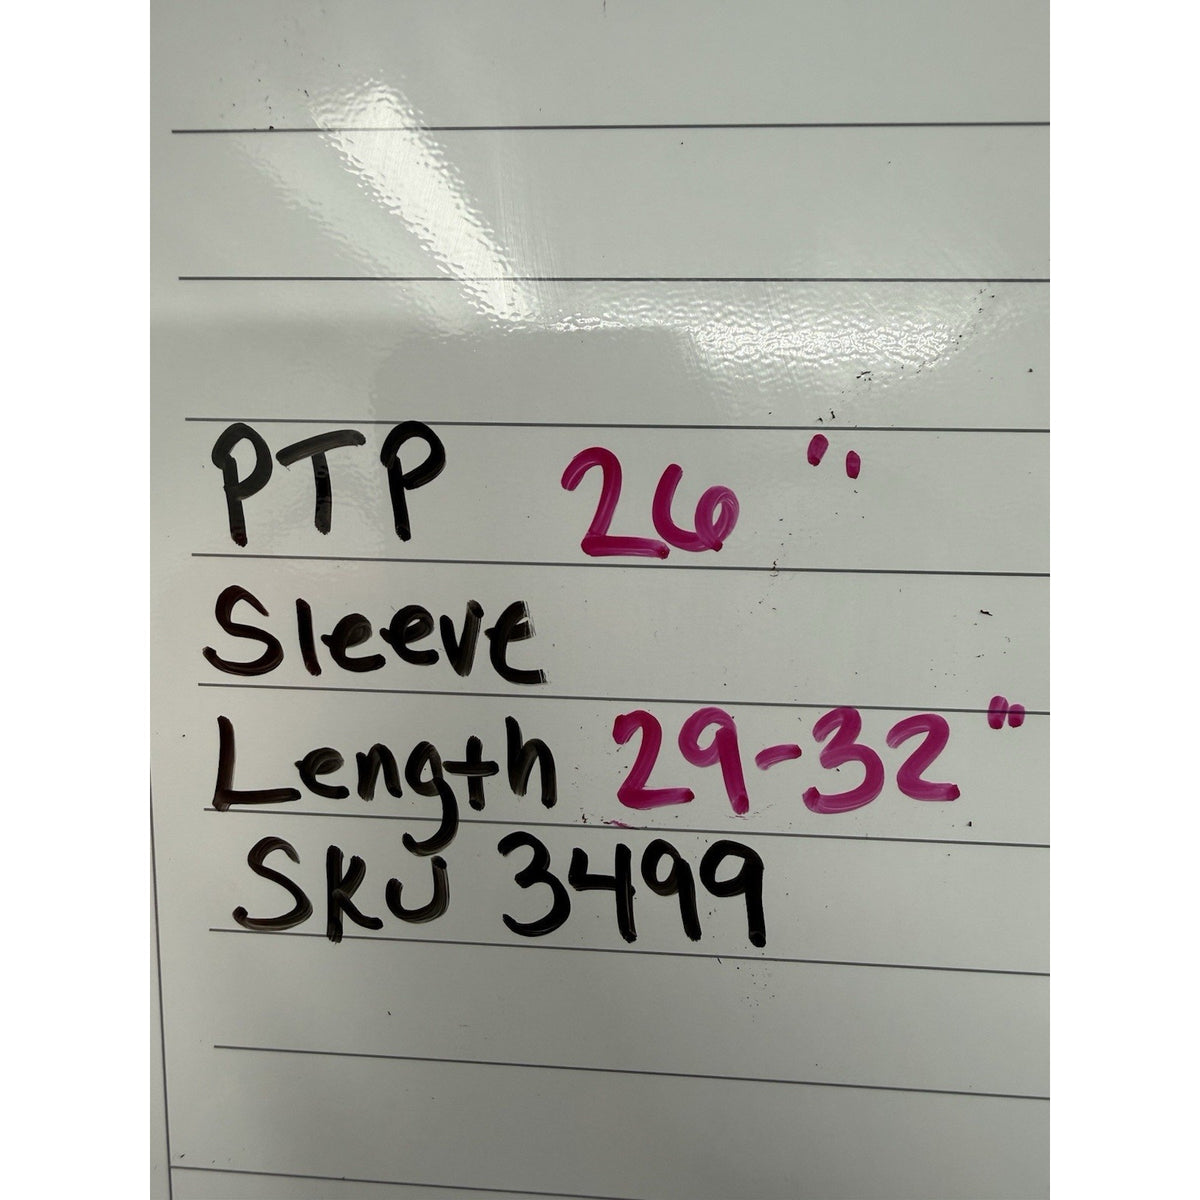 PTP 26"
Sleeve
Length 29-32"
SKU 3499